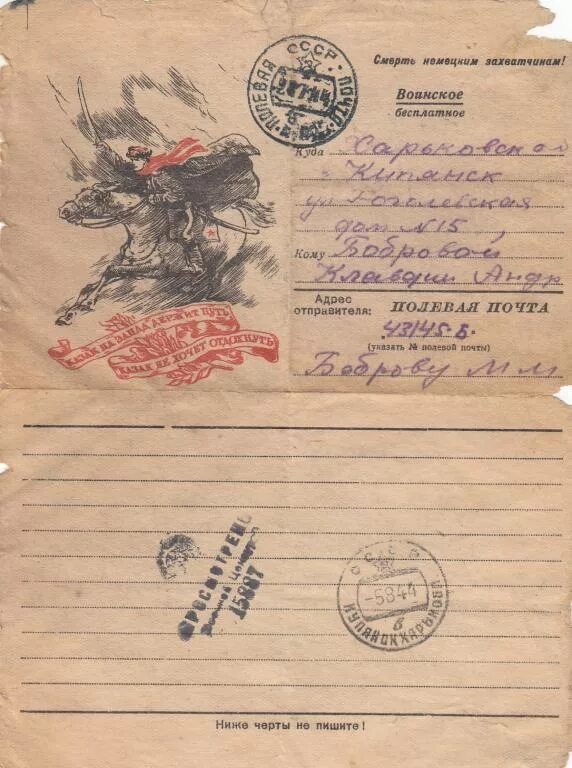 Смерть немецким захватчинам!
СССР
ПОЛЕВАЯ ПОЧТА
Воинское
бесплатное
Куда Харьковской
г Купянск
ул Гоголевская
дом N15,
Кому Бобровой
Клавдии Андр
Адрес
отправителя: ПОЛЕВАЯ ПОЧТА
43145-Б.
(указать № полевой почты)
Боброву М М
КАЗАК НА ЗАПАД ДЕРЖИТ ПУТЬ,
КАЗАК НЕ ХОЧЕТ ОТДОХНУТЬ
ПРОСМОТРЕНО
Военной Цензурой
15887
СССР
-5844
в
КУПЯНСК ХАРЬКОВ
Ниже черты не пишите!